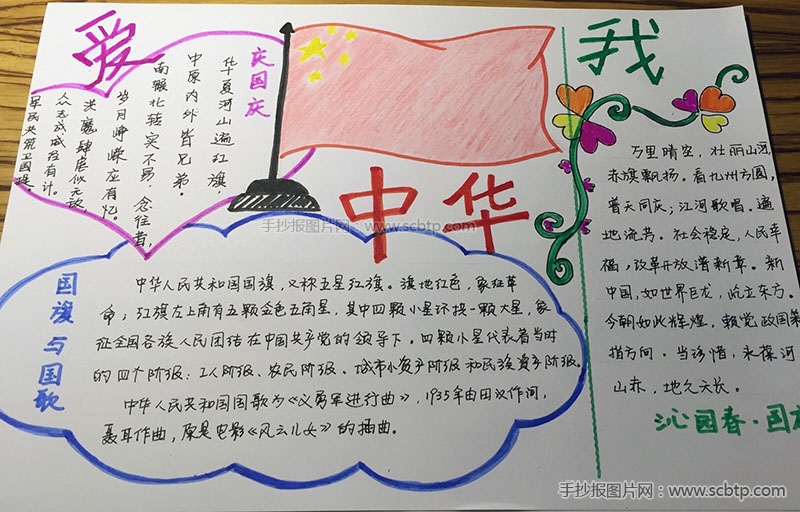 爱
我
中华
庆国庆
华夏河山遍红旗，
中原内外皆兄弟。
南猴北辕实不易，念往昔，
岁月峥嵘应有忆。
洪魔肆虐似无敌，
众志成城自有计。
军民共筑卫国堤。
手抄报图片网：www.scbtp.com
国旗与国歌
中华人民共和国国旗，又称五星红旗。旗地红色，象征革
命；红旗左上角有五颗金色五角星，其中四颗小星环拱一颗大星，象
征全国各族人民团结在中国共产党的领导下。四颗小星代表着当时
的四个阶级：工人阶级、农民阶级、城市小资产阶级和民族资产阶级。
中华人民共和国国歌为《义勇军进行曲》，1935年由田汉作词，
聂耳作曲，原是电影《风云儿女》的插曲。
万里晴空，壮丽山河，
赤旗飘扬。看九州方圆，
普天同庆；江河歌唱。遍
地流芳。社会稳定，人民幸
福，改革开放谱新章。新
中国，如世界巨龙，屹立东方。
今朝如此辉煌，赖党政国策
指方向。当珍惜，永葆河
山赤，地久天长。
沁园春·国庆
手抄报图片网：www.scbtp.com